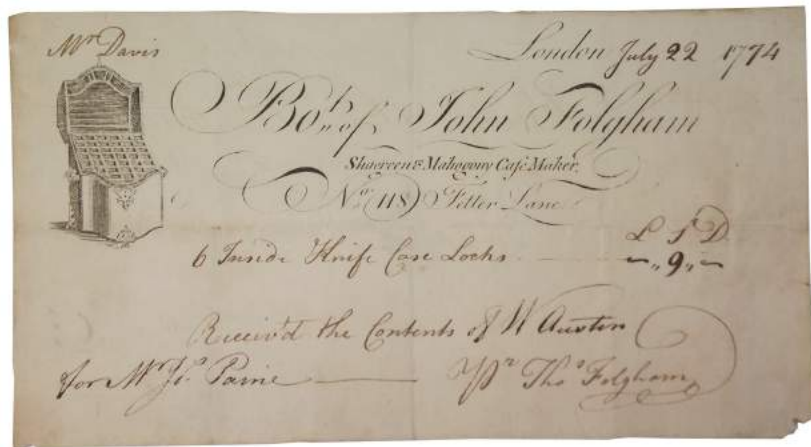 Mr Davis
London July 22 1774
Bot. of John Folgham
Shagreen & Mahogony Case Maker,
No. (118) Fetter Lane
L S D
6 Inside Knife Case Locks — „ 9 „ —
Receiv'd the Contents of W Austin
for Mr Js. Paine — Pr Thos Folgham